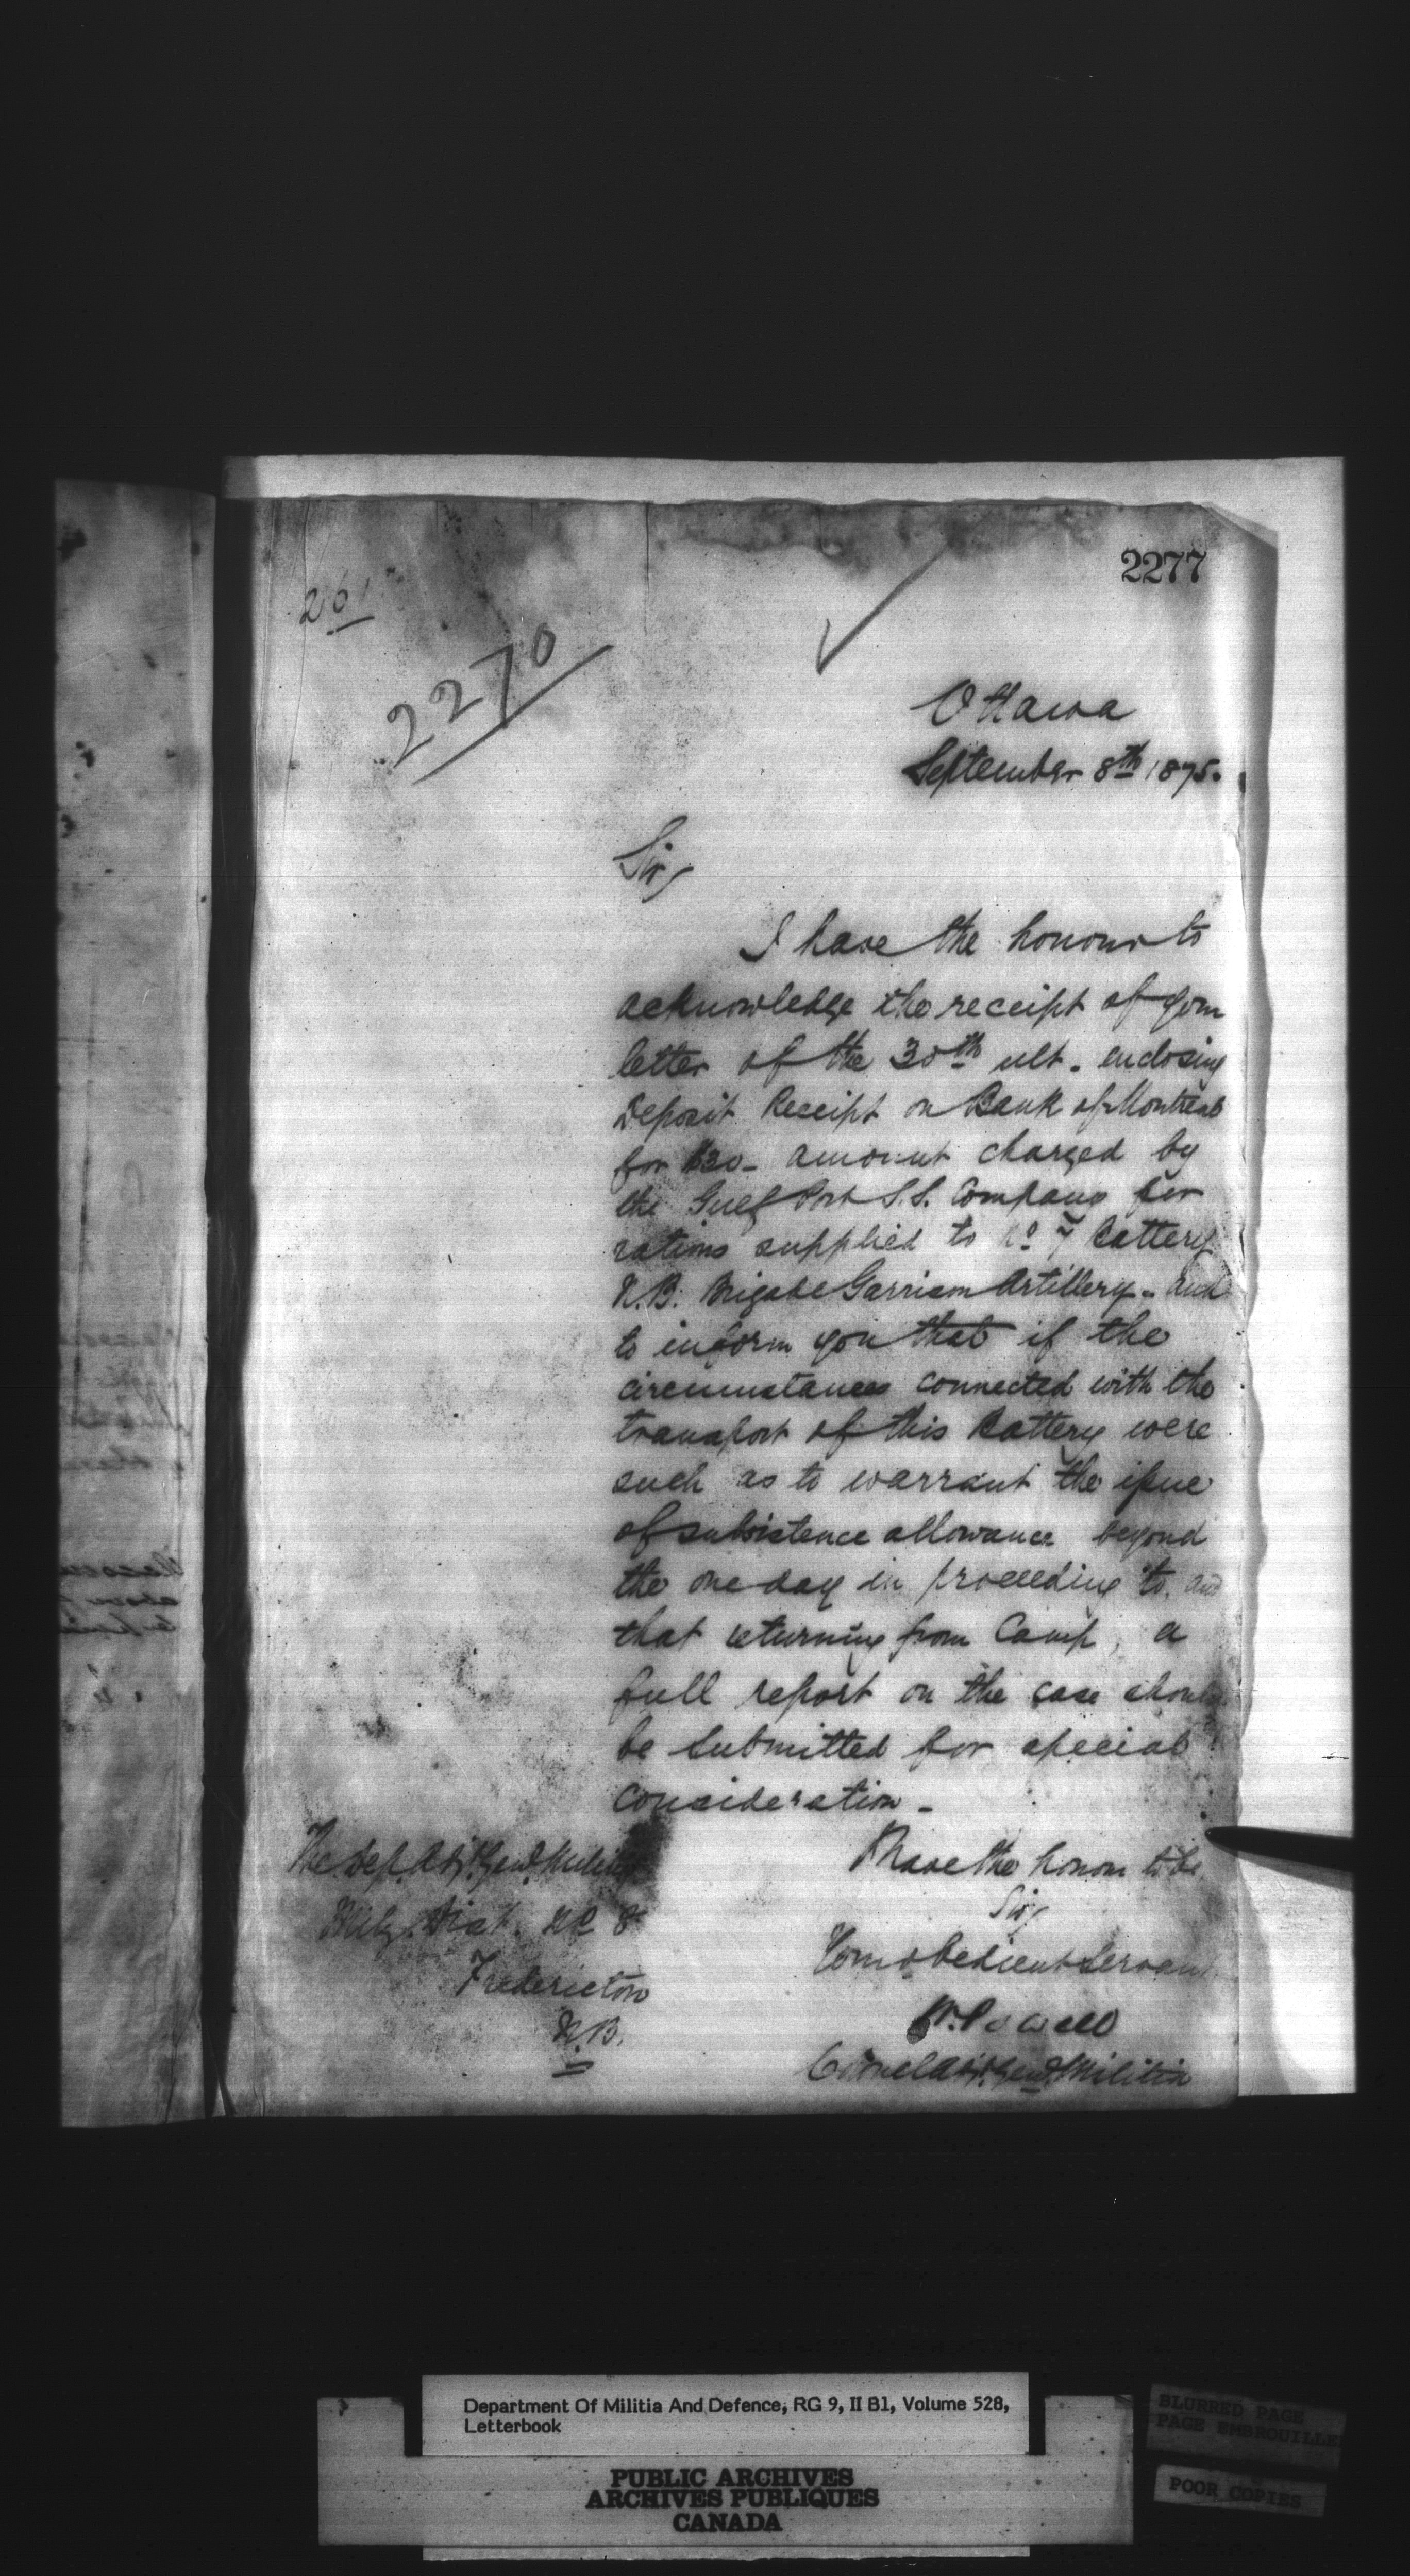 2277
261
2270
Ottawa
September 8th 1875.
Sir,
I have the honour to
acknowledge the receipt of your
letter of the 30th ult. enclosing
Deposit Receipt on Bank of Montreal
for $30 - amount charged by
the Gulf Port S.S. Company for
rations supplied to No 7 Battery
N.B. Brigade Garrison Artillery - and
to inform you that if the
circumstances connected with the
transport of this Battery were
such as to warrant the issue
of subsistence allowance beyond
the one day in proceeding to, and
that returning from Camp, a
full report on the case should
be submitted for special
consideration -
I have the honour to be
Sir,
Your obedient Servant
W. Powell
Colonel Adjt. Genl. Militia
The Dep. Adjt. Genl. Militia
Mily. Dist. No 8
Fredericton
N.B.
Department Of Militia And Defence, RG 9, II B1, Volume 528,
Letterbook
PUBLIC ARCHIVES
ARCHIVES PUBLIQUES
CANADA
BLURRED PAGE
PAGE EMBROUILLE
POOR COPIES